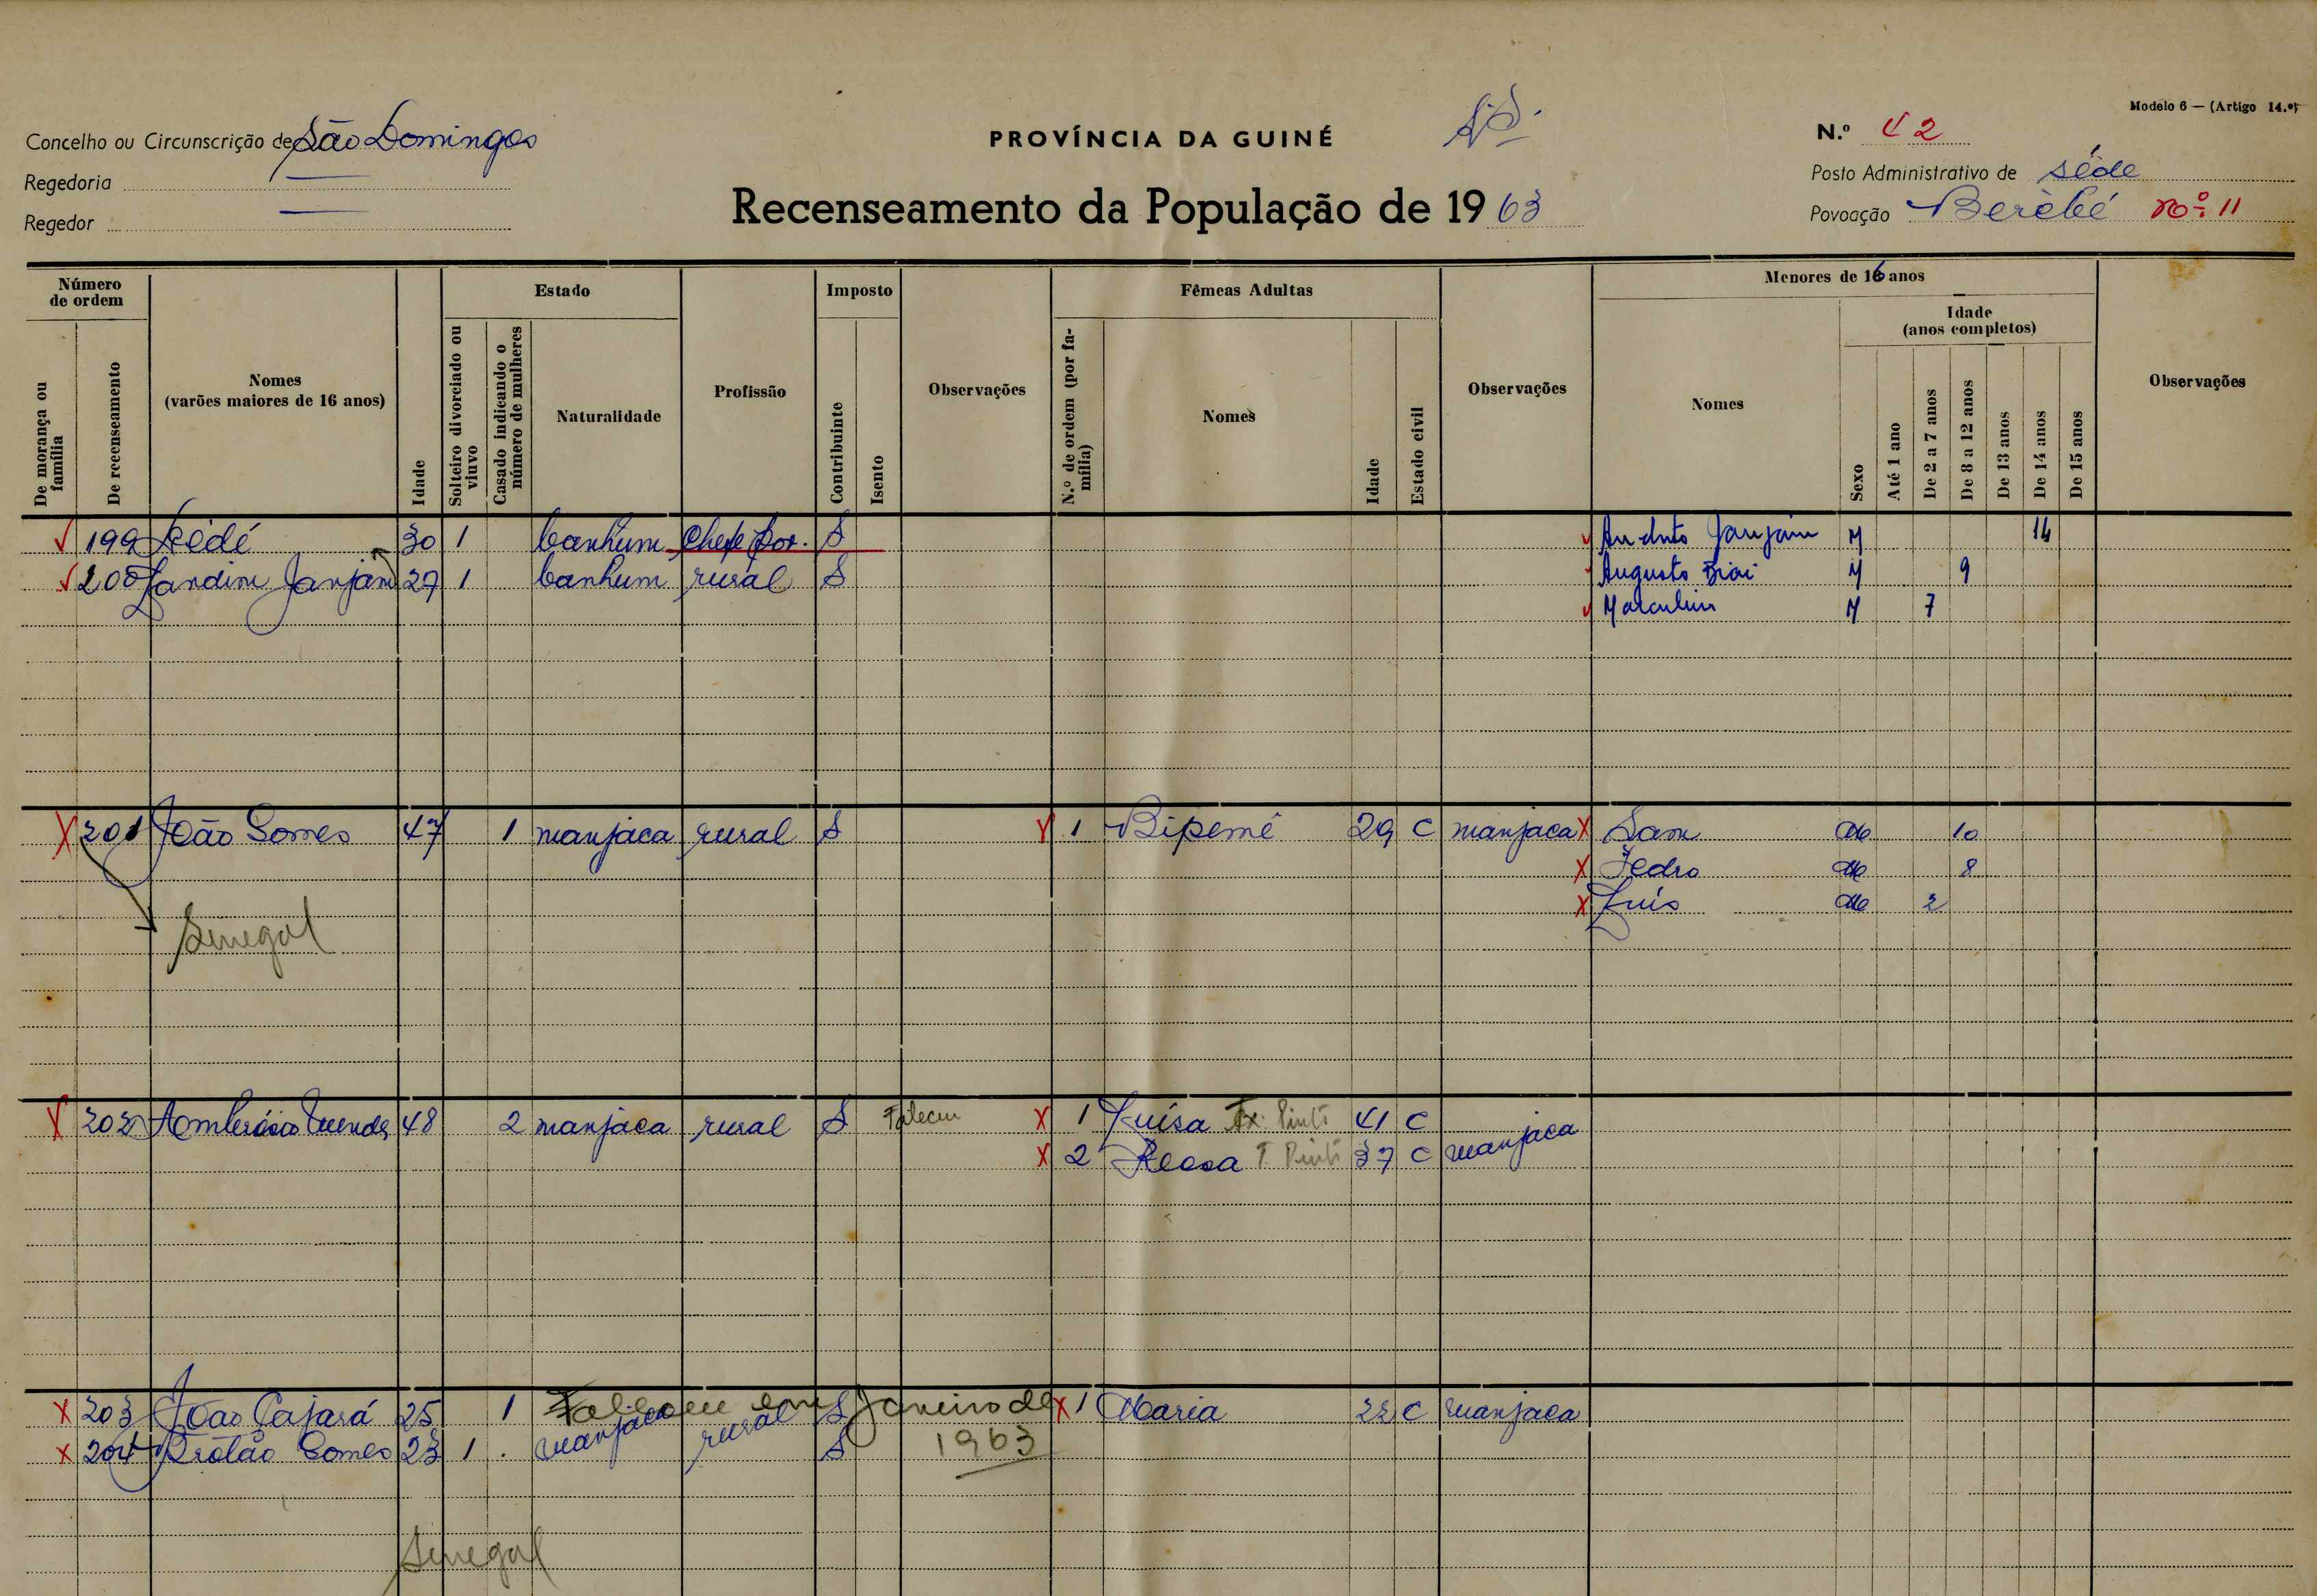 Modelo 6 — (Artigo 14.º)
Concelho ou Circunscrição de São Domingos
PROVÍNCIA DA GUINÉ
N.º 42
Regedoria —
Posto Administrativo de Séde
Regedor —
Recenseamento da População de 1963
Povoação Berèbé nº 11
Número de ordem
De morança ou família
De recenseamento
Nomes (varões maiores de 16 anos)
Idade
Estado
Solteiro divorciado ou viuvo
Casado indicando o número de mulheres
Naturalidade
Profissão
Imposto
Contribuinte
Isento
Observações
Fêmeas Adultas
N.º de ordem (por família)
Nomes
Idade
Estado civil
Observações
Menores de 16 anos
Nomes
Sexo
Idade (anos completos)
Até 1 ano
De 2 a 7 anos
De 8 a 12 anos
De 13 anos
De 14 anos
De 15 anos
Observações
199 30 1 banhum Chefe Pov. S Janjam M 14
200 Jandim Janjam 27 1 banhum rural S Augusto M 9
M 7
201 João Gomes 47 1 manjaca rural S 1 Bipemé 29 C manjaca Sam M 10
Pedro M 8
Luís M 2
Senegal
202 Ambrósio Mendes 48 2 manjaca rural S Faleceu 1 Luísa 41 C
2 Rosa 37 C manjaca
203 João Cajará 25 1 manjaca rural S Faleceu em Janeiro de 1963 1 Maria 22 C manjaca
204 Gomes 23 1 S
Senegal